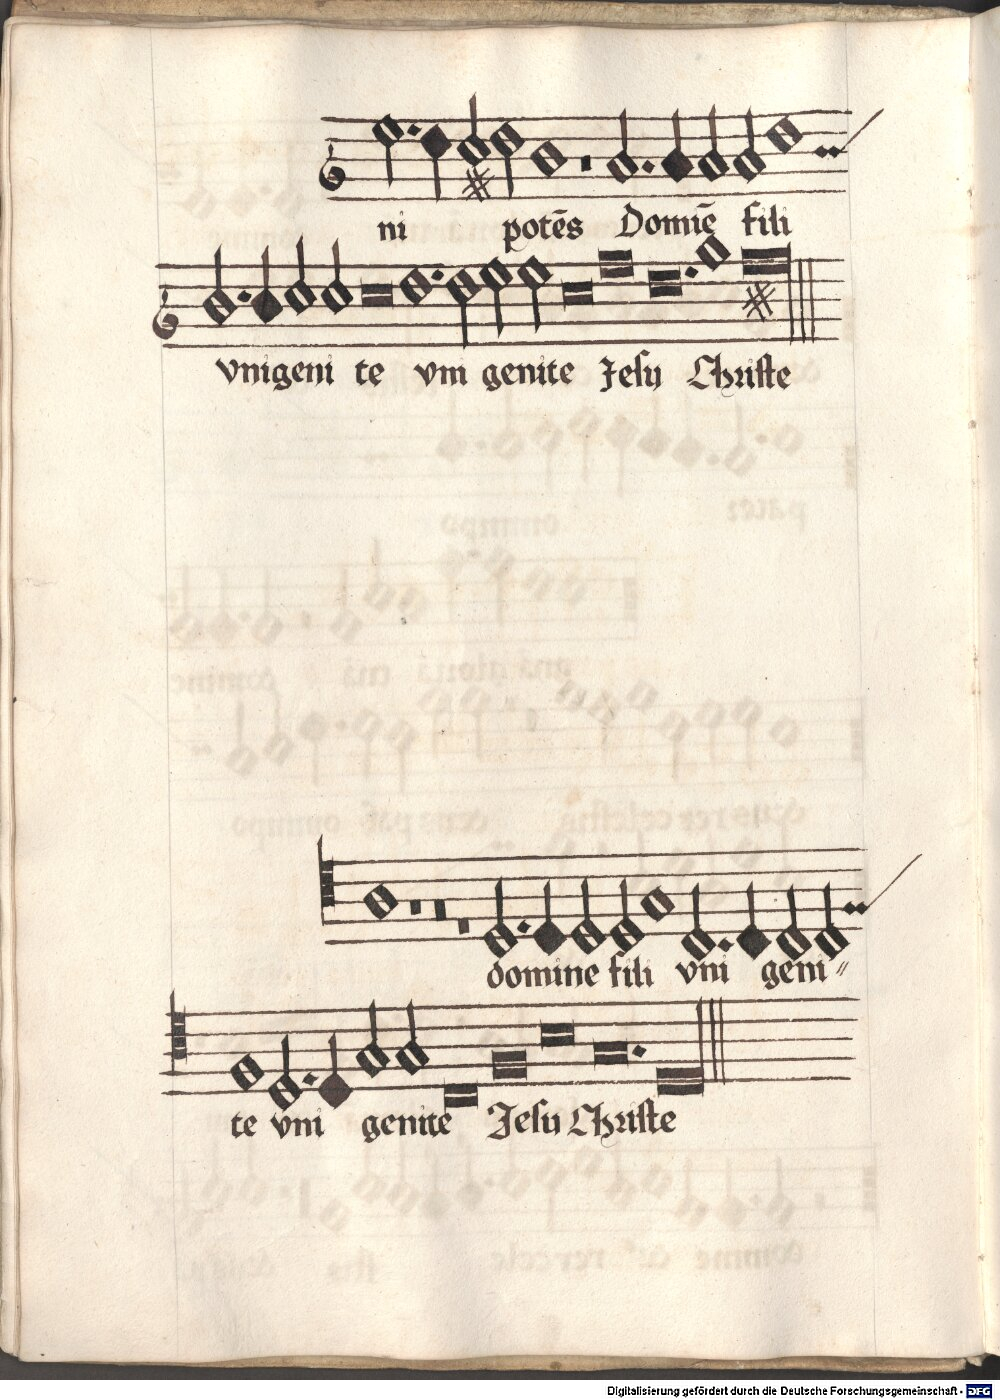 ni potēs Domīe fili
vnigeni te vni genite Jesu Christe
domine fili vni geni〃
te vni genite Jesu Christe
Digitalisierung gefördert durch die Deutsche Forschungsgemeinschaft - DFG